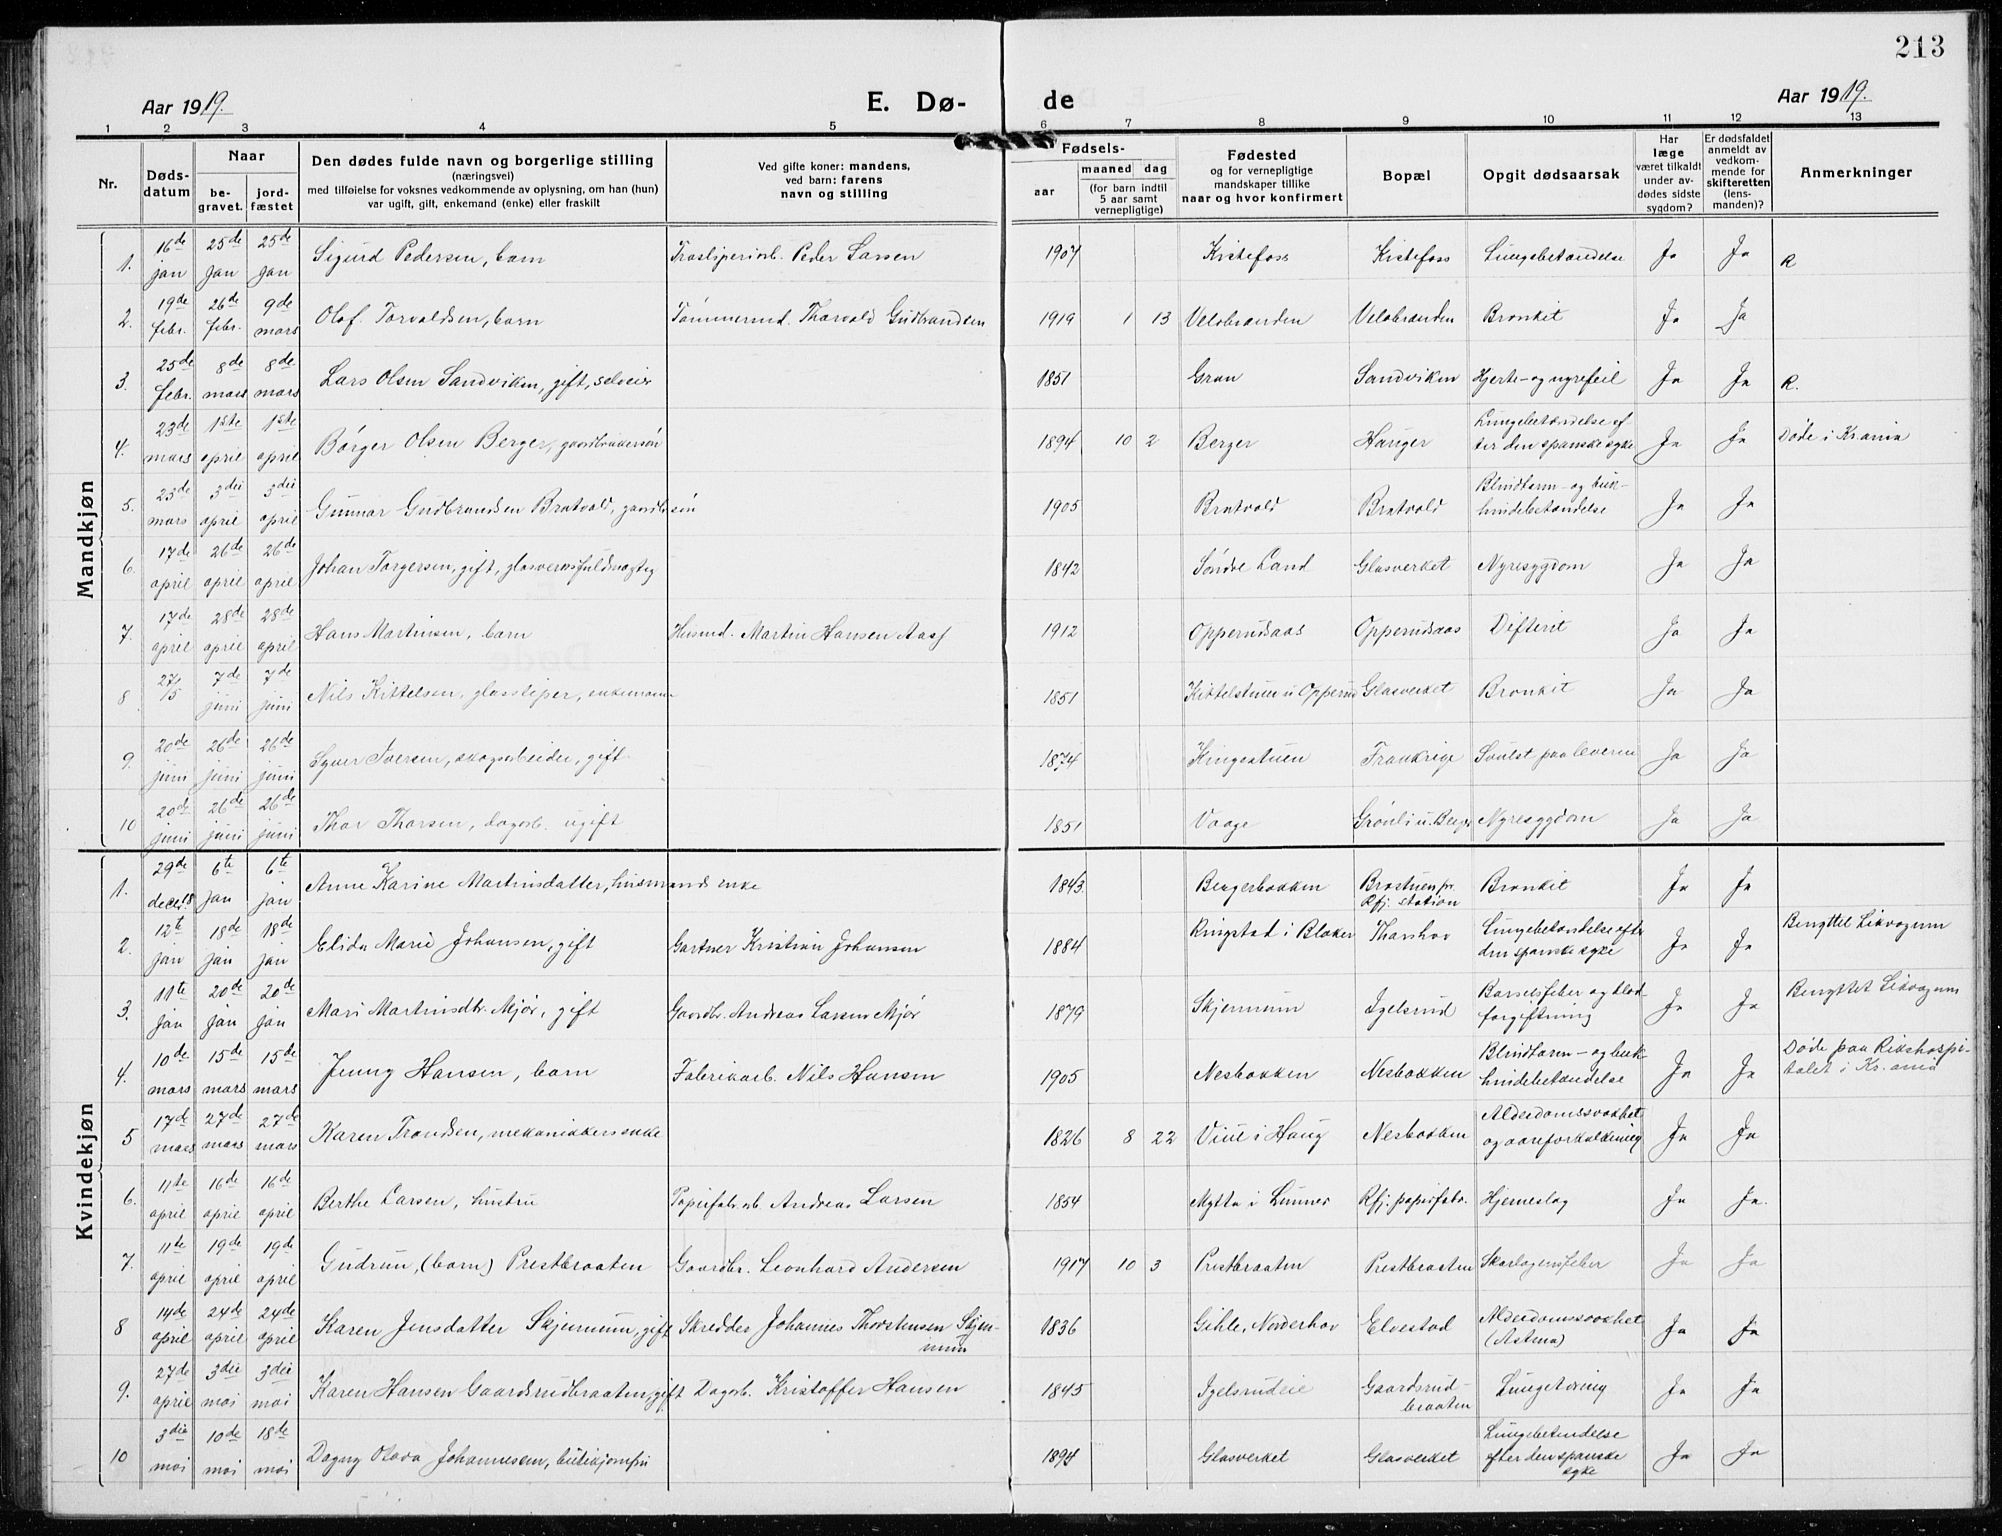 213
Aar 1919.
E. Dø-
de
Aar 1919.
1 2 3 4 5 6 7 8 9 10 11 12 13
Nr.
Døds-datum
Naar
be-gravet.
jord-fæstet
Den dødes fulde navn og borgerlige stilling
(næringsvei)
med tilføielse for voksnes vedkommende av oplysning, om han (hun)
var ugift, gift, enkemand (enke) eller fraskilt
Ved gifte koner: mandens,
ved barn: farens
navn og stilling
Fødsels-
aar
maaned dag
(for barn indtil
5 aar samt
vernepligtige)
Fødested
og for vernepligtige
mandskaper tillike
naar og hvor konfirmert
Bopæl
Opgit dødsaarsak
Har
læge
været tilkaldt
under av-
dødes sidste
sygdom?
Er dødsfaldet
anmeldt av
vedkom-
mende for
skifteretten
(lens-
manden)?
Anmerkninger
Mandkjøn
1. 16de jan 25de jan 25de jan Sigurd Pedersen, barn Træsliperiarb. Peder Larsen 1907 Kistefoss Kistefoss Lungebetændelse Ja Ja R
2. 19de febr. 26de febr. 9de mars Olaf Torvaldsen, barn Tømmermd. Thorvald Gudbrandsen 1919 1 13 Velobranden Velobranden Bronkit Ja Ja
3. 25de febr. 8de mars 8de mars Lars Olsen Sandviken, gift, selveier 1851 Gran Sandviken Hjerte- og nyrefeil Ja Ja R.
4. 23de mars 1ste april 1ste april Børger Olsen Berger, gaardbrukersøn 1894 10 2 Berger Hauger Lungebetændelse ef
ter den spanske syke Ja Ja Døde i Kr.ania
5. 23de mars 3die april 3die april Gunnar Gudbrandsen Bratvold, gaardbr.søn 1905 Bratvold Bratvold Blindtarm- og buk-
hindebetændelse Ja Ja
6. 17de april 26de april 26de april Johan Torgersen, gift, glasverksfuldmægtig 1842 Søndre Land Glasverket Nyresygdom Ja Ja
7. 17de april 28de april 28de april Hans Martinsen, barn Husmd. Martin Hansen Aas 1912 Opperudsaas Opperudsaas Difterit Ja Ja
8 27/5 7de juni 7de juni Nils Kittelsen, glassliper, enkemann 1851 Kittelstuen u Opperud Glasverket Bronkit Ja Ja
9. 20de juni 26de juni 26de juni Syver Iversen, skogsarbeider, gift. 1874 Kingsstuen Frankrige Svulst paa leveren Ja Ja
10 20de juni 26de juni 26de juni Thor Thorsen, dagarb. ugift 1851 Vaage Grønli u. Berger Nyresygdom Ja Ja
Kvindekjøn
1. 29de decbr.18 6te jan 6te jan Anne Karine Martinsdatter, husmands enke 1843 Bergerbakken Brostuen pr.
Rfj. station Bronkit Ja Ja
2. 12te jan 18de jan 18de jan Elida Marie Johansen, gift Gartner Kristian Johansen 1884 Ringstad i Blaker Thorshov Lungebetændelse efter
den spanske syke Ja Ja Benyttet Likvogun
3. 11te jan 20de jan 20de jan Mari Martinsdtr. Mjør, gift Gaardbr. Andreas Larsen Mjør 1879 Skjermum Igelsrud Barselsfeber og blod-
forgiftning Ja Ja Benyttet Likvogun
4. 10de mars 15de mars 15de mars Jenny Hansen, barn Fabrikarb. Nils Hansen 1905 Nesbakken Nesbakken Blindtarm- og buk-
hindebetændelse Ja Ja Døde paa Rikshospi-
talet i Kr.ania
5 17de mars 27de mars 27de mars Karen Trondsen, mekanikkers enke 1826 8 22 Viul i Haug Nesbakken Alderdomssvakhet
og aareforkalkning Ja Ja
6. 11te april 16de april 16de april Berthe Larsen, hustru Papirfabr.arb Andreas Larsen 1854 Mytta i Lunner Rfj. papirfabr. Hjerneslag Ja Ja.
7. 11te april 19de april 19de april Gudrun, (barn) Prestbraaten Gaardbr. Leonhard Andersen 1917 10 3 Prestbraaten Prestbraaten Skarlagensfeber Ja Ja
8 14de april 24de april 24de april Karen Jensdatter Skjermum, gift Skredder Johannes Thorstensen Skjer-
mum 1836 Gihle, Norderhov Elvestad Alderdomssvakhet
(Astma) Ja Ja
9. 27de april 3die mai 3die mai Karen Hansen Gaardsrudbraaten, gift Dagarb. Kristoffer Hansen 1845 Igelsrudeie Gaardsrud-
braaten Lungetæring Ja Ja
10 3die mai 10de mai 18de mai Dagny Olava Johannessen, butikjomfru 1894 Glasverket Glasverket Lungebetændelse
efter den spanske
syke Ja Ja